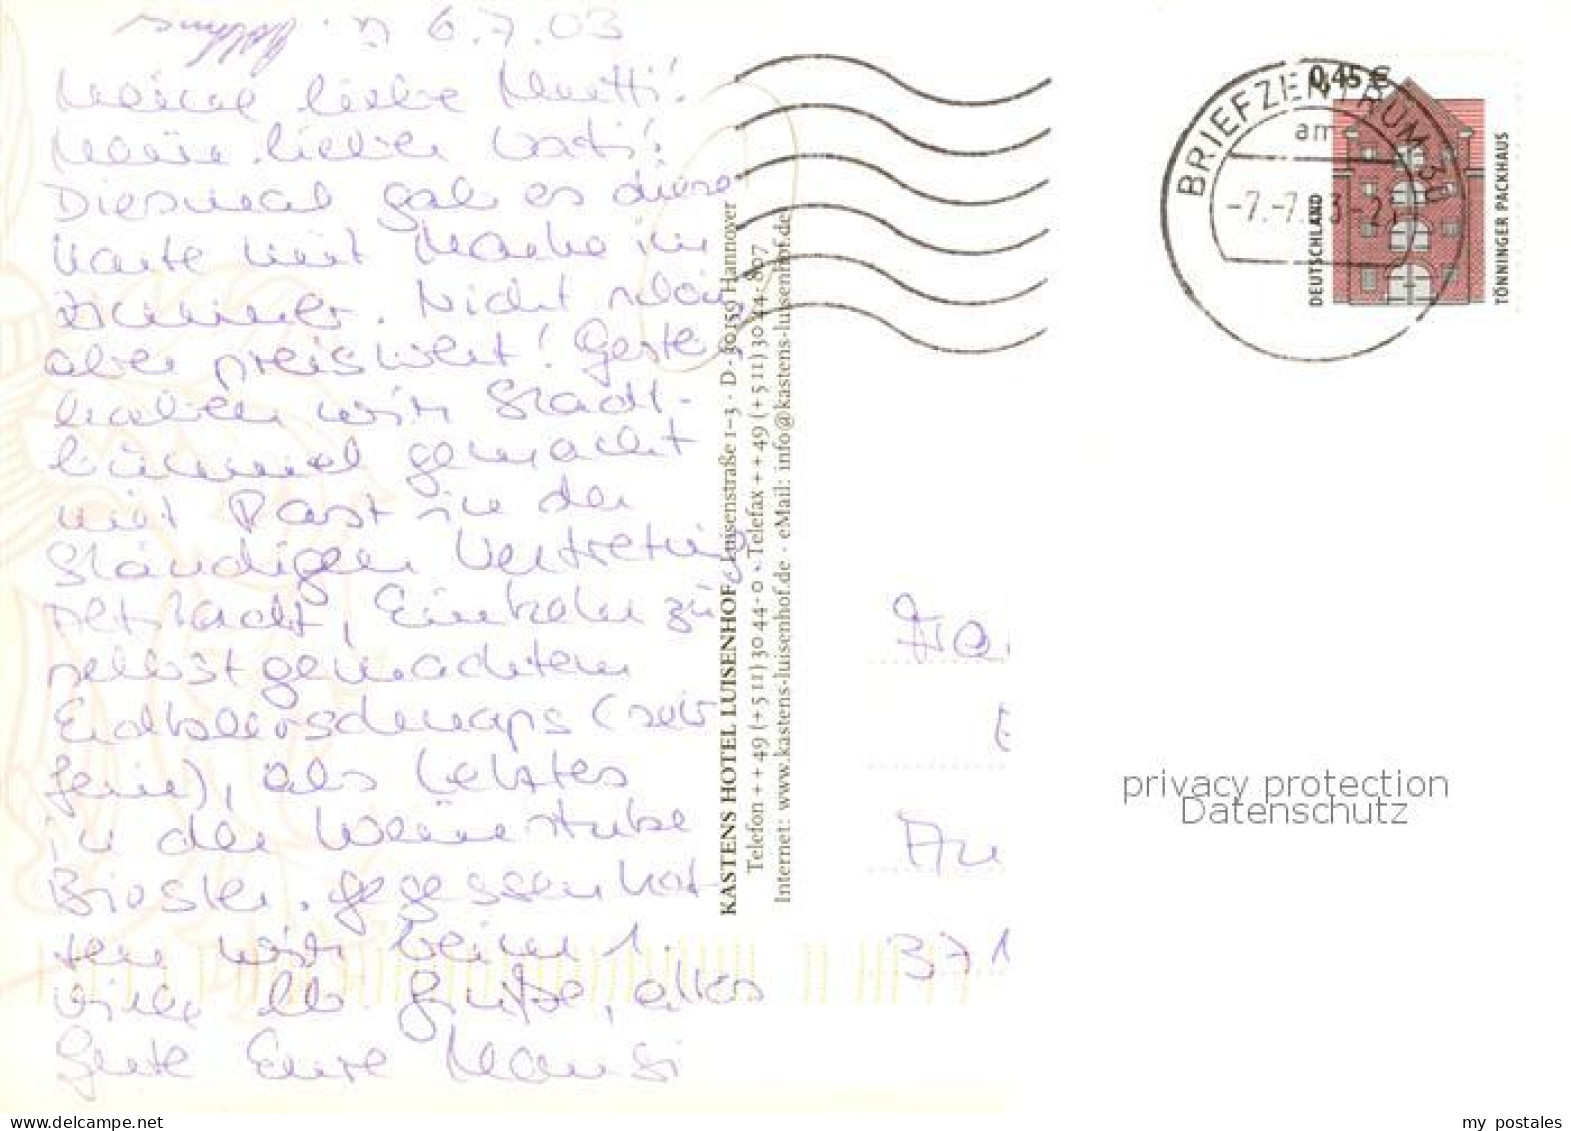 6.7.03
Meine liebe Mutti!
Mein lieber Vati!
Diesmal gab es diese
Karte mit Marke im
Zimmer. Nicht schön
aber preiswert! Gestern
haben wir Stadt-
bummel gemacht
mit Rast in der
Ständigen Vertretung
Altstadt, Einkehr zu
selbstgemachtem
Erdbeerschnaps (sehr
fein), als letztes
in der Weinstube
gegessen hat-
ten wir beim 1.
viele lb Grüße, alles
Gute Eure Mausi
KASTENS HOTEL LUISENHOF · Luisenstraße 1–3 · D - 30159 Hannover
Telefon ++49 (+511) 30 44-0 · Telefax ++49 (+511) 30 44-807
Internet: www.kastens-luisenhof.de · eMail: info@kastens-luisenhof.de
BRIEFZENTRUM 30
am
-7.-7.
0,45 €
DEUTSCHLAND
TÖNNINGER PACKHAUS
371
privacy protection
Datenschutz
my postales